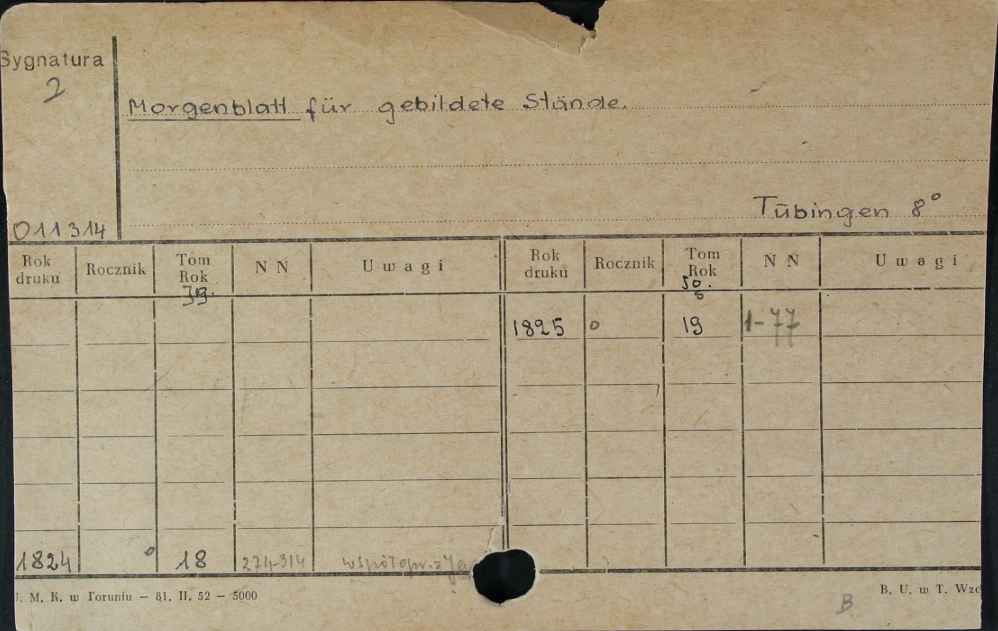 Sygnatura
2
Morgenblatt für gebildete Stände.
Tübingen 8°
011314
Rok druku Rocznik Tom Rok N N Uwagi Rok druku Rocznik Tom Rok N N Uwagi
1825 0 19 1-77
1824 0 18 274-314 współopr. z
U. M. K. w Toruniu — 81. II. 52 — 5000
B. U. w T.
B